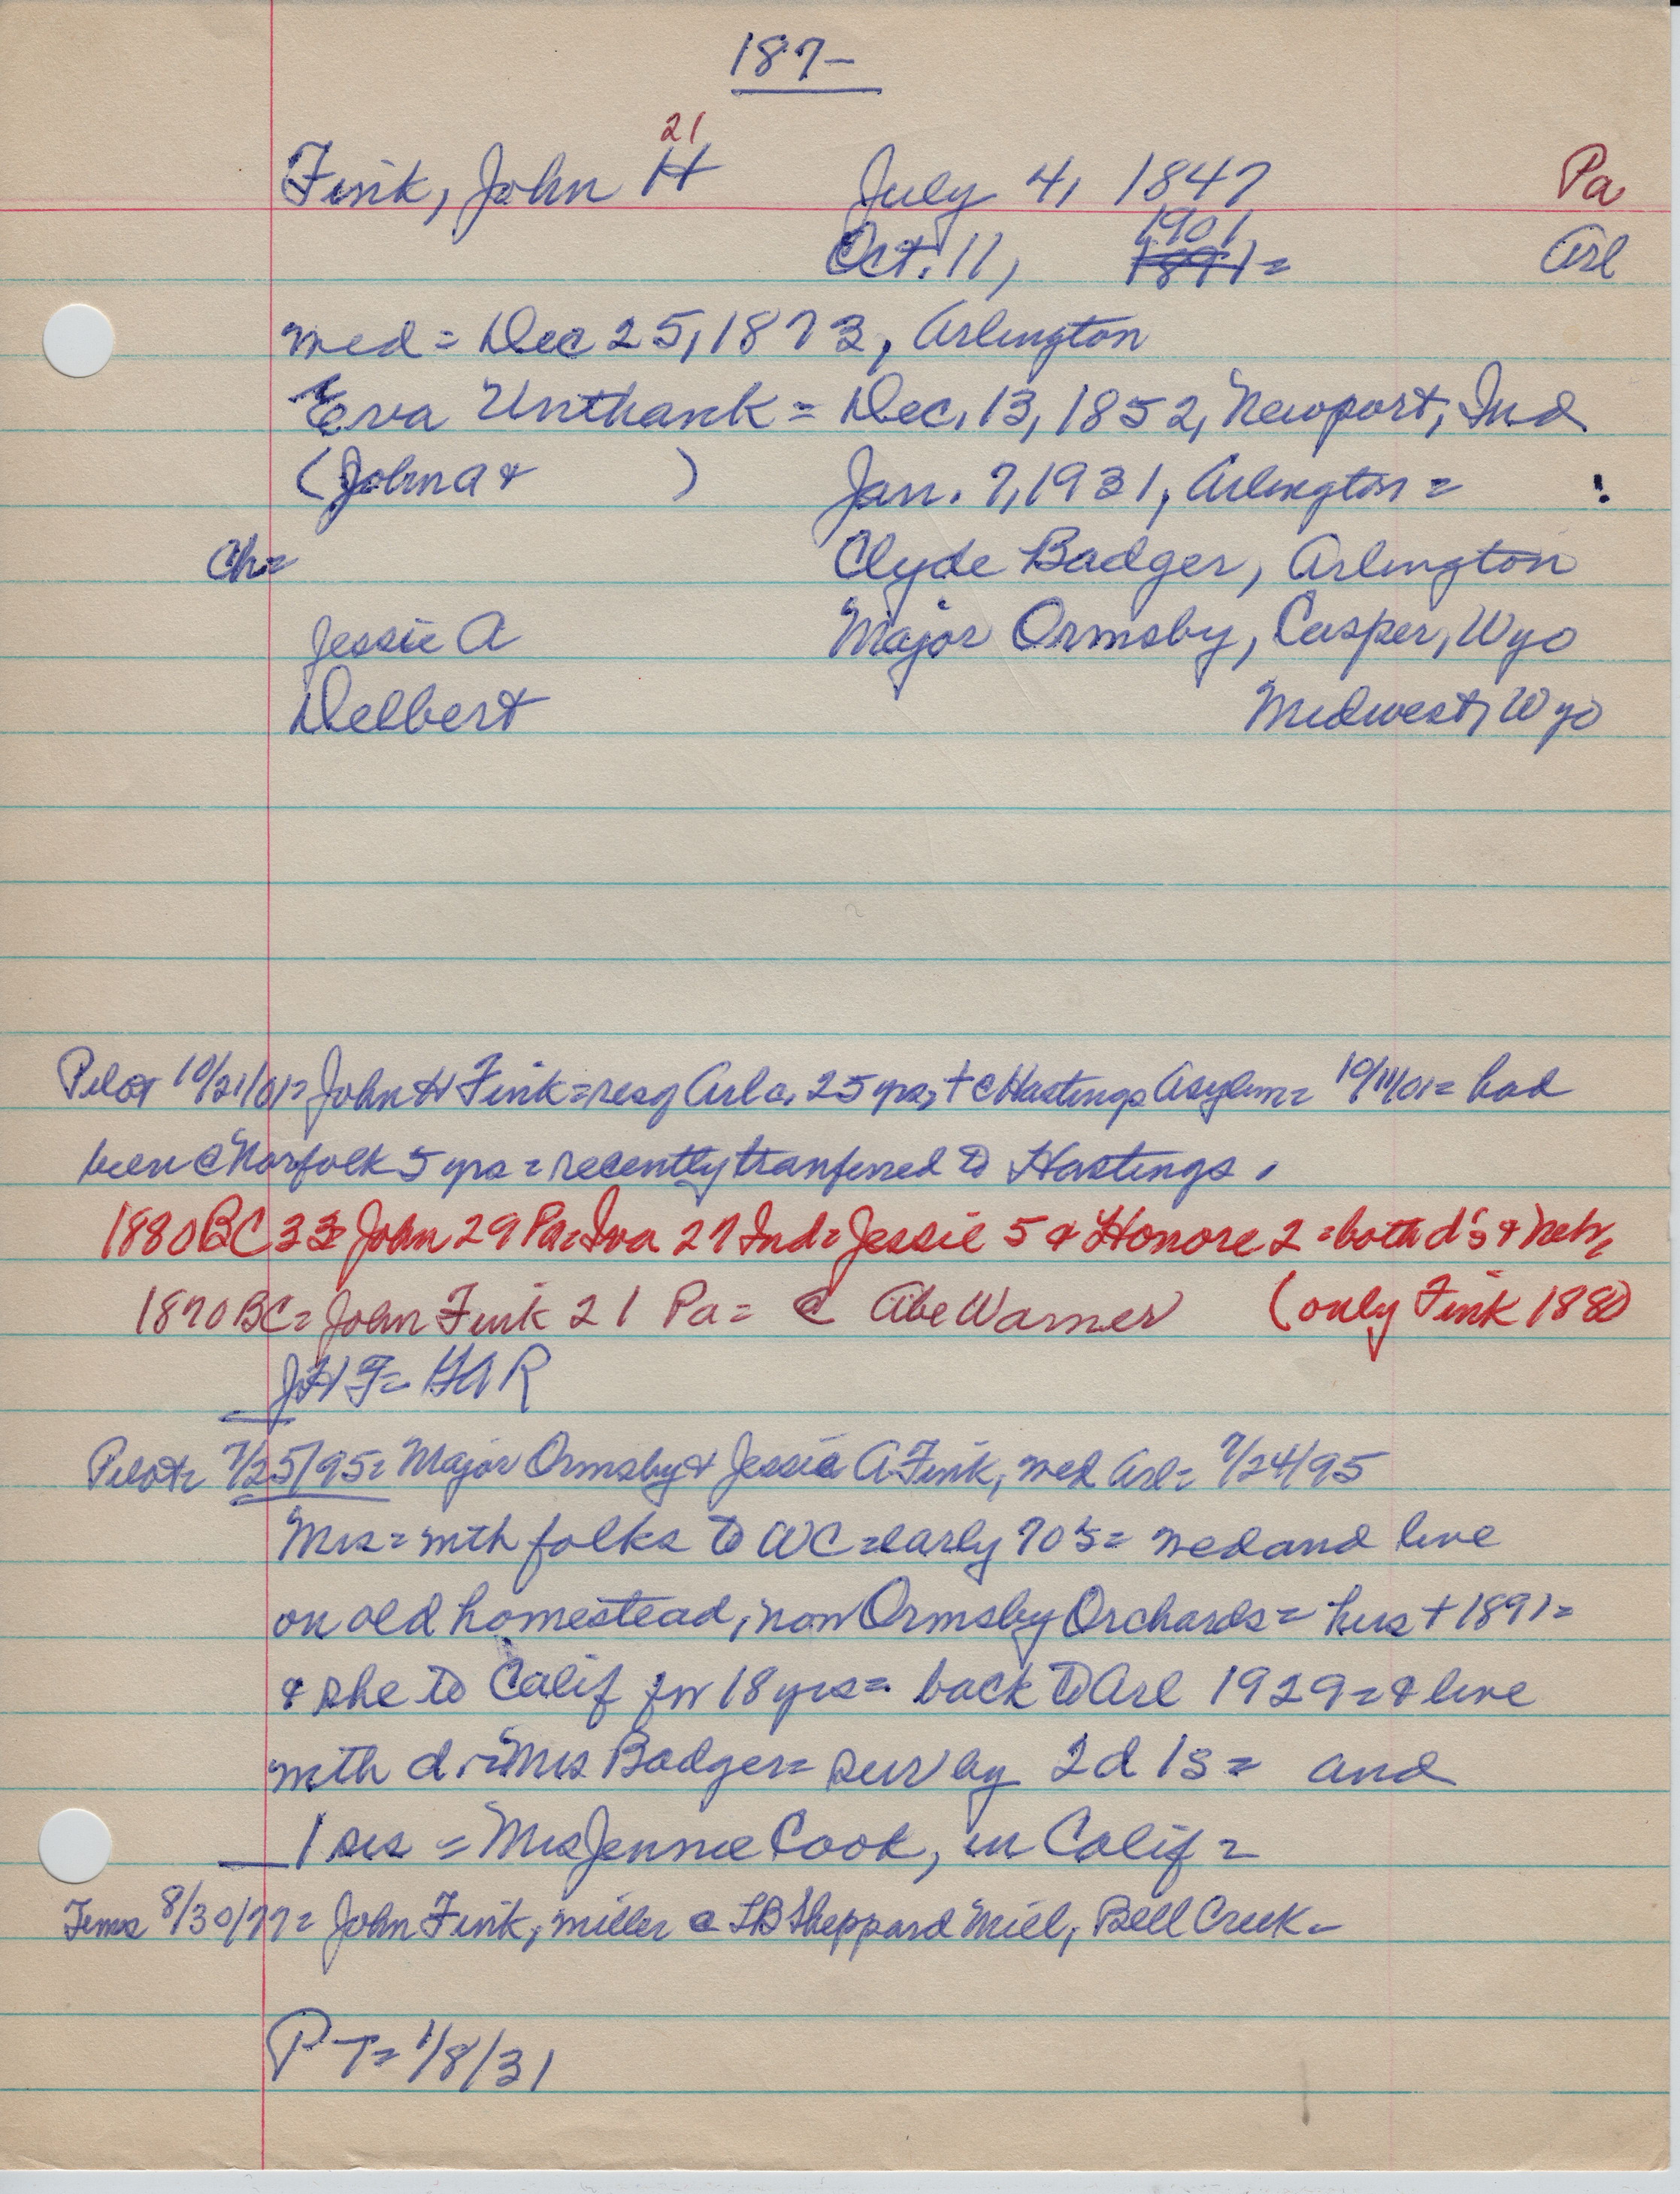 187-
21
Fink, John H July 4, 1847 Pa
1901
Oct. 11, 1891= Arl
med = Dec 25, 1873, Arlington
Eva Unthank = Dec. 13, 1852, Newport, Ind
(John A & ) Jan. 7, 1931, Arlington = :
Ch= Clyde Badger, Arlington
Jessie A Major Ormsby, Casper, Wyo
Delbert Midwest, Wyo
Pilot 10/21/01= John H Fink = res of Arl a. 25 yrs, + c Hastings Asylum = 10/11/01= had
been c Norfolk 5 yrs = recently tranferred to Hastings.
1880 BC 33= John 29 Pa= Iva 27 Ind= Jessie 5 & Honore 2 = both d's & Neb,
1870 BC= John Fink 21 Pa= c Abe Warner (only Fink 1880)
JHF= GAR
Pilot= 7/25/95= Major Ormsby & Jessie A Fink, med Arl= 7/24/95
Mrs = with folks to WC = early 70's= med and live
on old homestead, now Ormsby Orchards= hus + 1891=
& she to Calif for 18 yrs= back to Arl 1929= & live
with d. = Mrs Badger= sur by 2d 1s= and
1 sis = Mrs Jennie Cook, in Calif =
Times 8/30/77= John Fink, miller c LB Sheppard Mill, Bell Creek -
PT= 1/8/31